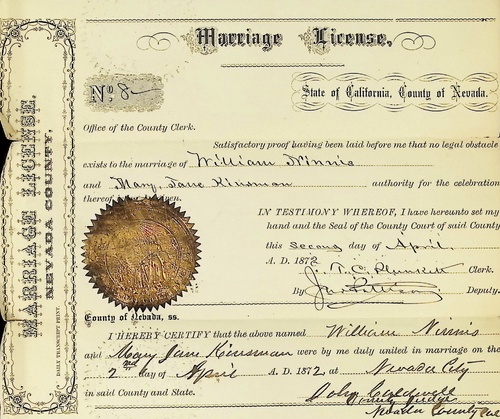 Marriage License,
MARRIAGE LICENSE.
NEVADA COUNTY.
DAILY TRANSCRIPT PRINT.
No. 8
State of California, County of Nevada.
Office of the County Clerk.
Satisfactory proof having been laid before me that no legal obstacle
exists to the marriage of William Ninnis
and Mary Jane Kinsman authority for the celebration
thereof
IN TESTIMONY WHEREOF, I have hereunto set my
hand and the Seal of the County Court of said County
this second day of April,
A. D. 1872.
J. T. C. Plunkett Clerk.
By Deputy.
County of Nevada, ss.
I HEREBY CERTIFY that the above named William Ninnis
and Mary Jane Kinsman were by me duly united in marriage on the
2nd day of April A. D. 1872 at Nevada City
in said County and State. John Caldwell
County Judge
Nevada County Cal